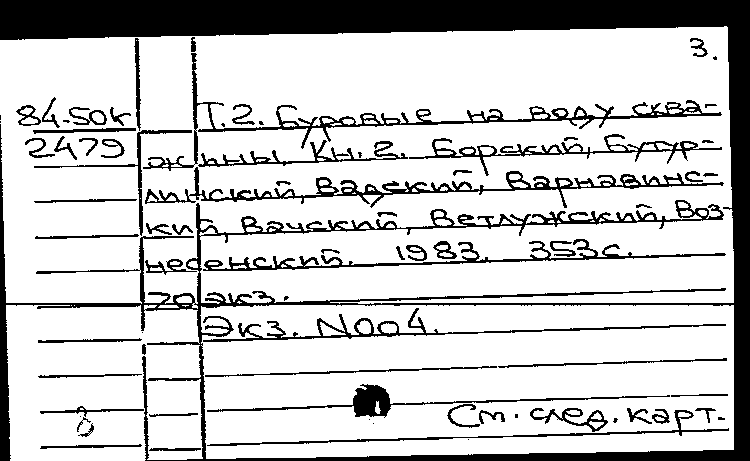 3.
84-50к Т.2. Буровые на воду сква-
2479 жины. Кн.2. Борский, Бутур-
линский, Вадский, Варнавинс-
кий, Вачский, Ветлужский, Воз-
несенский. 1983. 353с.
70 экз.
Экз. N004.
8 См. след. карт.